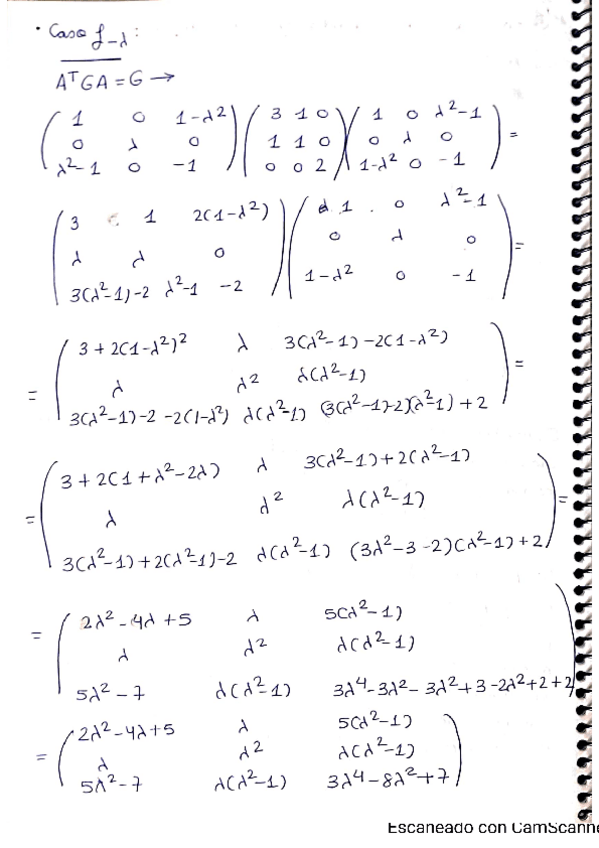 · Caso f-λ :
AᵀGA = G →
( 1 0 1-λ² ) ( 3 1 0 ) ( 1 0 λ²-1 )
( 0 λ 0 ) ( 1 1 0 ) ( 0 λ 0 ) =
( λ²-1 0 -1 ) ( 0 0 2 ) ( 1-λ² 0 -1 )
( 3 1 2(1-λ²) ) ( 1 0 λ²-1 )
( λ λ 0 ) ( 0 λ 0 ) =
( 3(λ²-1)-2 λ²-1 -2 ) ( 1-λ² 0 -1 )
( 3+2(1-λ²)² λ 3(λ²-1)-2(1-λ²) )
= ( λ λ² λ(λ²-1) ) =
( 3(λ²-1)-2-2(1-λ²) λ(λ²-1) (3(λ²-1)-2)(λ²-1)+2 )
( 3+2(1+λ²-2λ) λ 3(λ²-1)+2(λ²-1) )
= ( λ λ² λ(λ²-1) ) =
( 3(λ²-1)+2(λ²-1)-2 λ(λ²-1) (3λ²-3-2)(λ²-1)+2 )
( 2λ²-4λ+5 λ 5(λ²-1) )
= ( λ λ² λ(λ²-1) )
( 5λ²-7 λ(λ²-1) 3λ⁴-3λ²-3λ²+3-2λ²+2+2 )
( 2λ²-4λ+5 λ 5(λ²-1) )
= ( λ λ² λ(λ²-1) )
( 5λ²-7 λ(λ²-1) 3λ⁴-8λ²+7 )
Escaneado con CamScanne